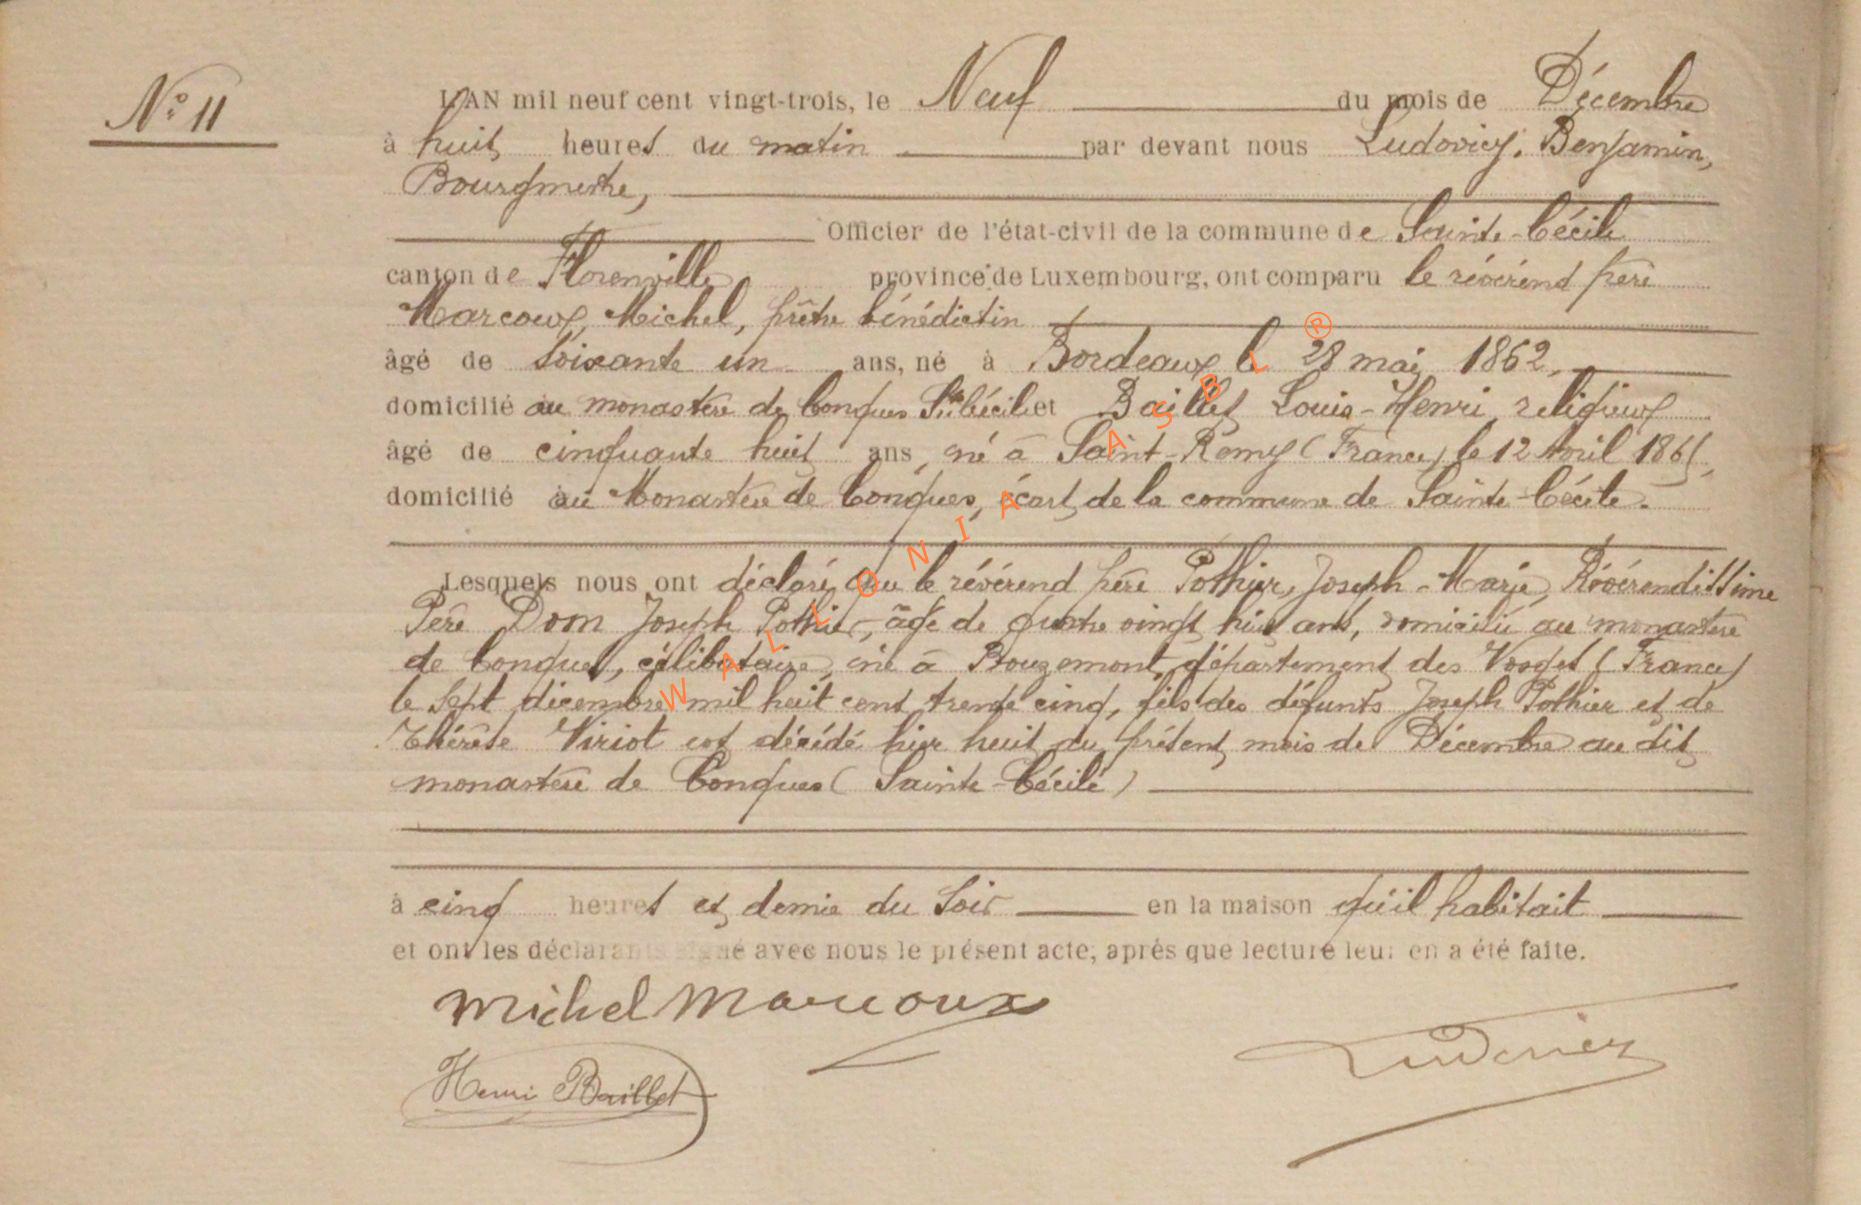 N° 11
L'AN mil neuf cent vingt-trois, le Neuf du mois de Décembre
à huit heures du matin par devant nous Ludovicy, Benjamin,
Bourgmestre,
Officier de l'état-civil de la commune de Sainte-Cécile
canton de Florenville province de Luxembourg, ont comparu le révérend père
Marcoux, Michel, prêtre bénédictin
âgé de soixante un ans, né à Bordeaux le 28 mai 1862,
domicilié au monastère de Conques Ste Cécile et Baillet Louis-Henri, religieux
âgé de cinquante huit ans, né à Saint-Remy (France) le 12 Avril 1865,
domicilié au Monastère de Conques, écart de la commune de Sainte-Cécile.
Lesquels nous ont déclaré que le révérend père Pothier, Joseph-Marie, Révérendissime
Père Dom Joseph Pothier, âgé de quatre vingt huit ans, domicilié au monastère
de Conques, célibataire, né à Bouzemont, département des Vosges (France)
le sept décembre mil huit cent trente cinq, fils des défunts Joseph Pothier et de
Thérèse Viriot est décédé hier huit du présent mois de Décembre au dit
monastère de Conques (Sainte-Cécile)
à cinq heures et demie du soir en la maison qu'il habitait
et ont les déclarants signé avec nous le présent acte, après que lecture leur en a été faite.
Michel Marcoux
Henri Baillet
Ludovicy
WALLONIA ASBL ®